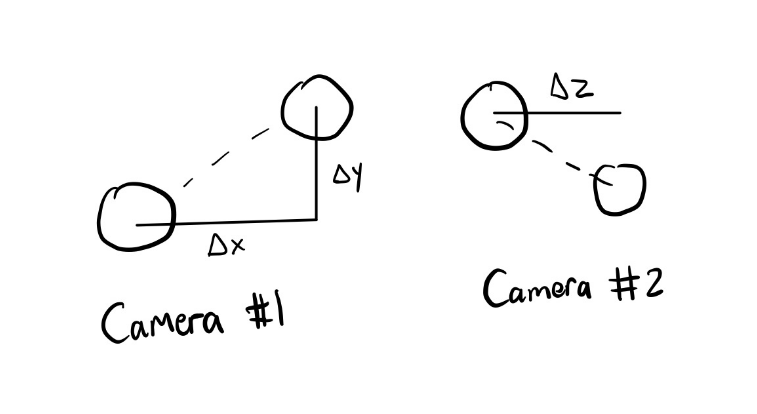 Δz
Δy
Δx
Camera #1
Camera #2